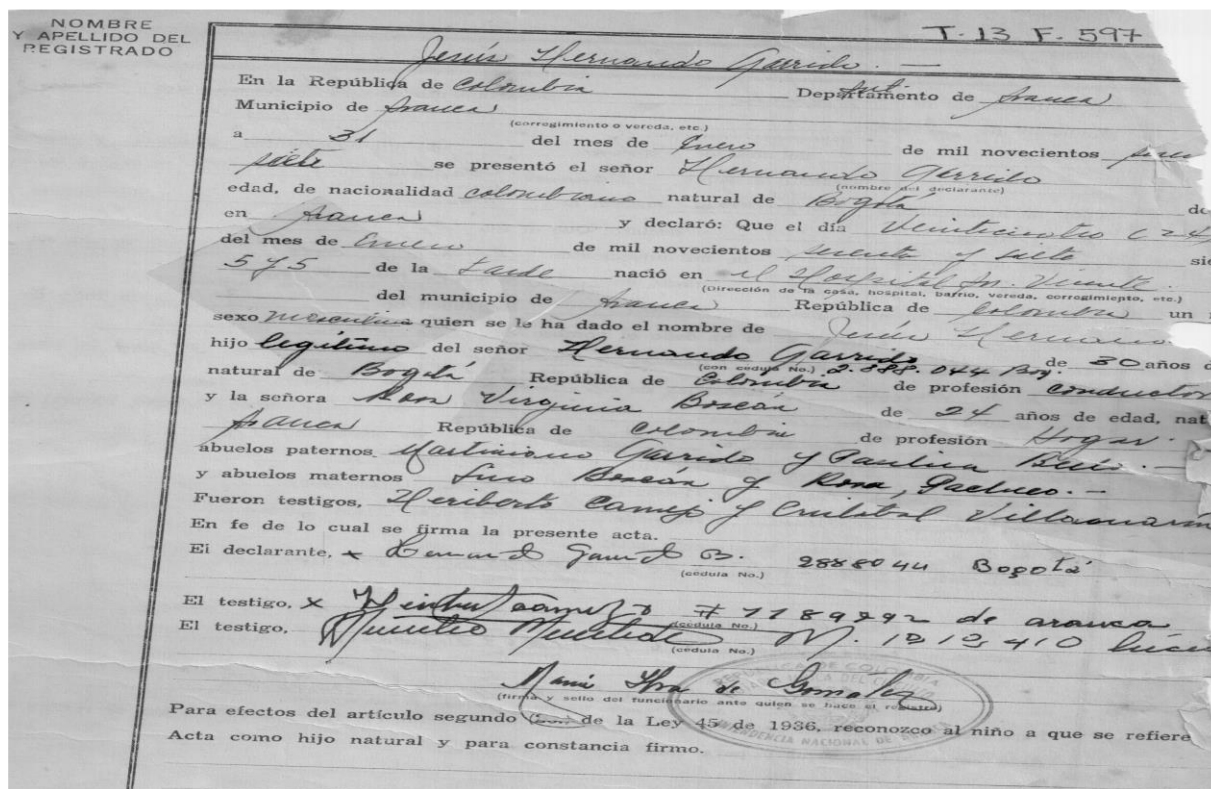 NOMBRE
Y APELLIDO DEL
REGISTRADO
T. 13 F. 597
Jesús Hernando Garrido. —
En la República de Colombia Departamento de Arauca
Municipio de Arauca
(corregimiento o vereda, etc.)
a 31 del mes de Enero de mil novecientos
siete se presentó el señor Hernando Garrido
(nombre del declarante)
edad, de nacionalidad colombiano natural de Bogotá
en Arauca y declaró: Que el día Veinticuatro (24)
del mes de Enero de mil novecientos sesenta y siete
5 y 5 de la tarde nació en el Hospital Sn. Vicente.
(Dirección de la casa, hospital, barrio, vereda, corregimiento, etc.)
del municipio de Arauca República de Colombia un
sexo masculino quien se le ha dado el nombre de Jesús Hernando
hijo legítimo del señor Hernando Garrido de 30 años
(con cédula No.) 2.888.044 Bog.
natural de Bogotá República de Colombia de profesión conductor
y la señora Virginia Boscán de 24 años de edad, nat
Arauca República de Colombia de profesión Hogar.
abuelos paternos Martiniano Garrido y Paulina
y abuelos maternos Lino Boscán y Rosa Pacheco. —
Fueron testigos, Heriberto Camejo y Cristóbal Villamarín
En fe de lo cual se firma la presente acta.
El declarante, x Hernando Garrido B. 2888044 Bogotá
(cédula No.)
El testigo, x # 1189292 de arauca
(cédula No.)
El testigo,
(cédula No.)
María de Gonzalez
(firma y sello del funcionario ante quien se hace el registro)
Para efectos del artículo segundo de la Ley 45 de 1936, reconozco al niño a que se refiere
Acta como hijo natural y para constancia firmo.